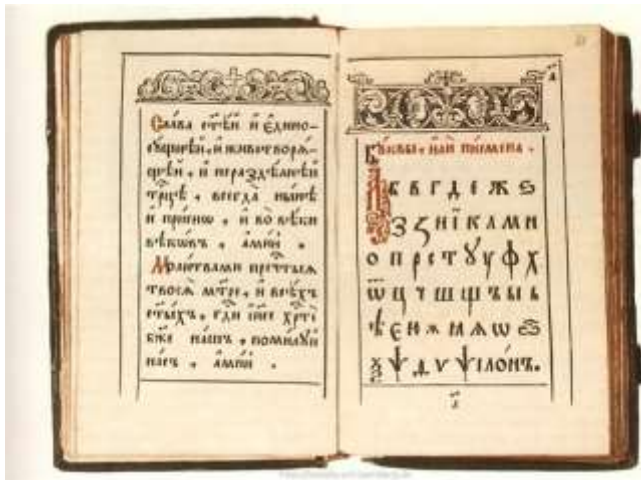 Сла́ва ст҃ѣ́й и҆ є҆дино-
сꙋ́щнѣй, и҆ животворѧ́-
щей, и҆ нераздѣ́лнѣй
трⷪ҇цѣ, всегда̀ ны́нѣ
и҆ при́снѡ, и҆ во вѣ́ки
вѣкѡ́въ, а҆ми́нь.
Моли́твами пречⷭ҇тыѧ
твоеѧ̀ мт҃ре, и҆ всѣ́хъ
ст҃ы́хъ, гдⷭ҇и і҆и҃се хрⷭ҇тѐ
бж҃е на́шъ, поми́лꙋй
на́съ, а҆ми́нь.
Бꙋ́квы, и҆лѝ писмена̀.
А Б В Г Д Е Ж Ѕ
З И Ї К Л М Н
О П Р С Т Ꙋ У Ф Х
Ѿ Ц Ч Ш Щ Ъ Ы Ь
Ѣ Є Ю Ѫ Ѧ Ѡ
Ѱ Ѵ